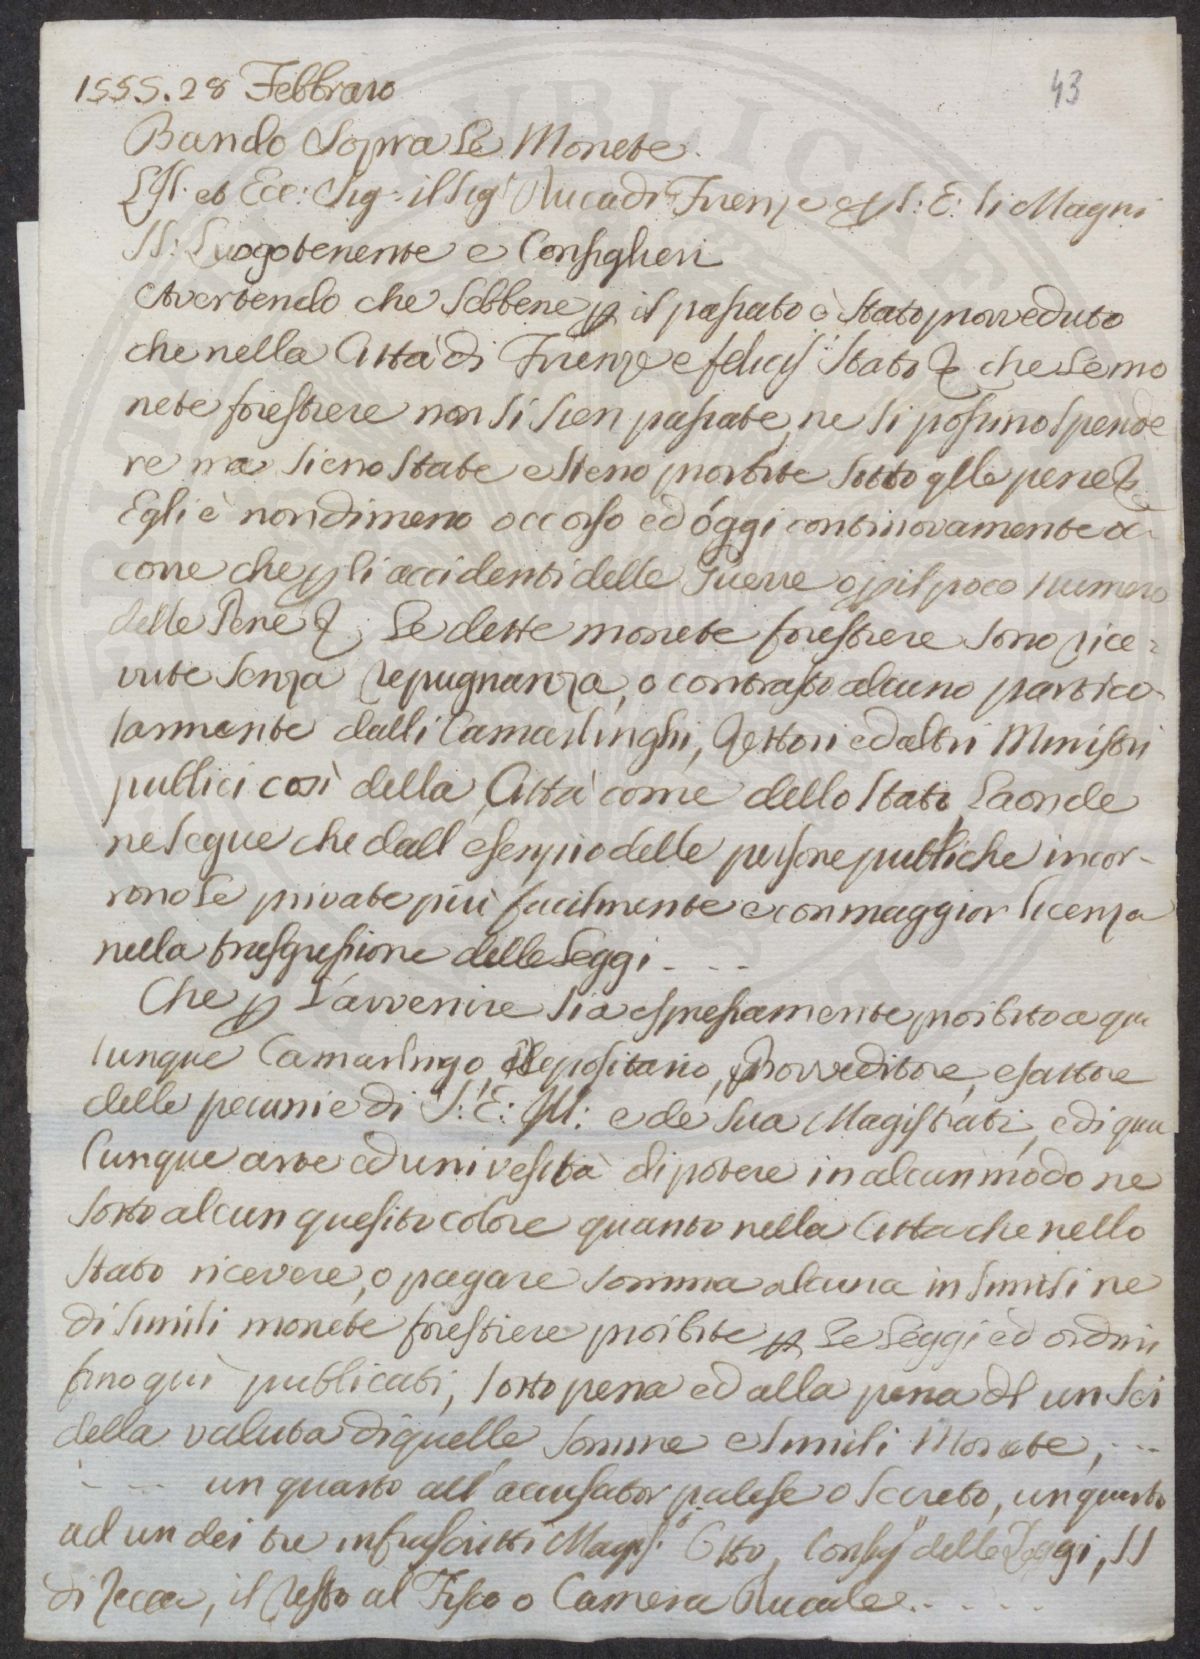 43
1555. 28 Febbraro
Bando Sopra Le Monete.
L'Ill. et Ecc: Sig: il Sig Duca di Firenze e p S: E: li Magni
SS: Luogotenente e Consiglieri
Avertendo che Sebbene p il passato è Stato provveduto
che nella Città di Firenze e felicis Stato & che Le mo
nete forestiere non Si Sien passate, ne Si possino Spende
re ma Sieno State e Sieno proibite Sotto qlle pene &
Egli è nondimeno occorso ed óggi continovamente a-
corre che p li accidenti delle Guerre o p il poco numero
delle Pene &. Le dette monete forestiere Sono rice=
vute Senza repugnanza, o contrasto alcuno partico-
larmente dalli Camarlinghi, Rettori ed altri Ministri
publici così della Città come dello Stato, Laonde
ne Segue che dall esempio delle persone publiche incor-
rono Le private più facilmente e con maggior licenza
nella trasgressione delle Leggi. - - -
Che p L'avvenire Sia espressamente proibito a qua
lunque Camarlingo, Depositario, Provveditore, esattore
delle pecunie di S: E: Ill: e de Sua Magistrati, e di qua
lunque arte ed univesità di potere in alcun modo ne
Sotto alcun quesito colore quanto nella Città che nello
Stato ricevere, o pagare Somma alcuna in Simili ne
di Simili monete forestiere proibite p Le Leggi ed ordini
fino quì publicati, Sotto pena ed alla pena di un Sei
della valuta di quelle Somme e Simili Monete, - - -
- - - un quarto all'accusator palese o Secreto, un quarto
ad un dei tre infrascritti Magis.ti Otto, Consig.ri delle Leggi, SS
di Zecca, il resto al Fisco o Camera Ducale. - - - -